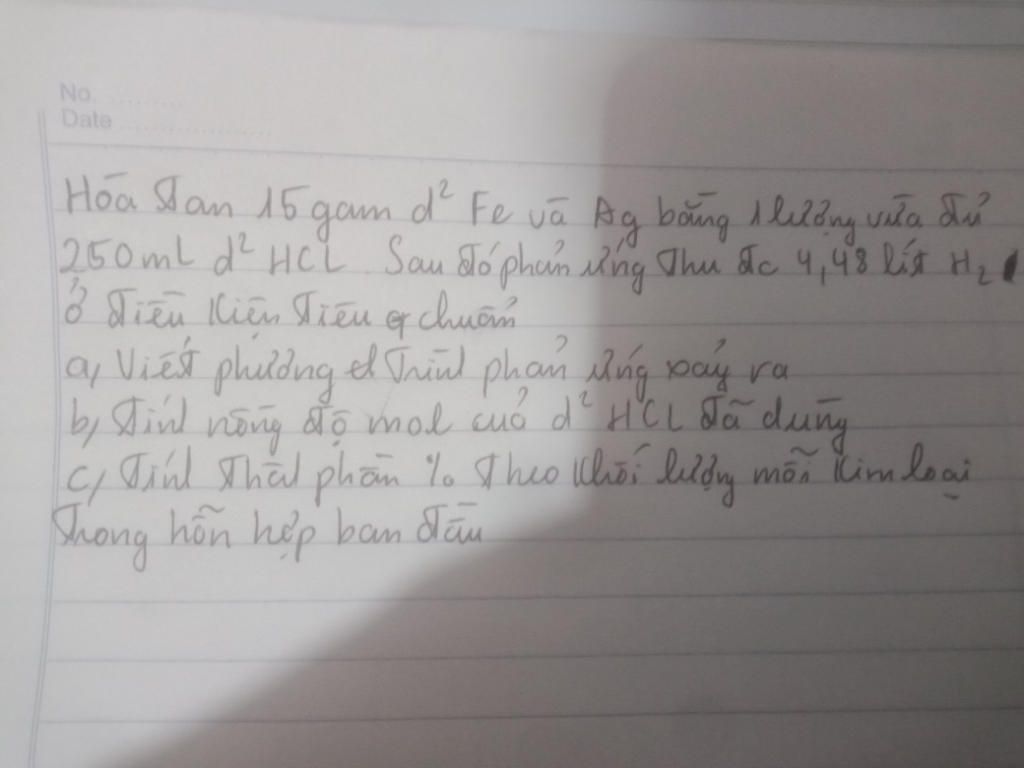 No. ............
Date ........................
Hóa tan 15 gam d² Fe và Ag bằng 1 lượng vừa đủ
250 mL d² HCL. Sau đó phản ứng thu đc 4,48 lít H₂
ở điều kiện tiêu chuẩn
a, Viết phương trình phản ứng xảy ra
b, tính nồng độ mol của d² HCL đã dùng
c, tính thành phần % theo khối lượng mỗi kim loại
trong hỗn hợp ban đầu